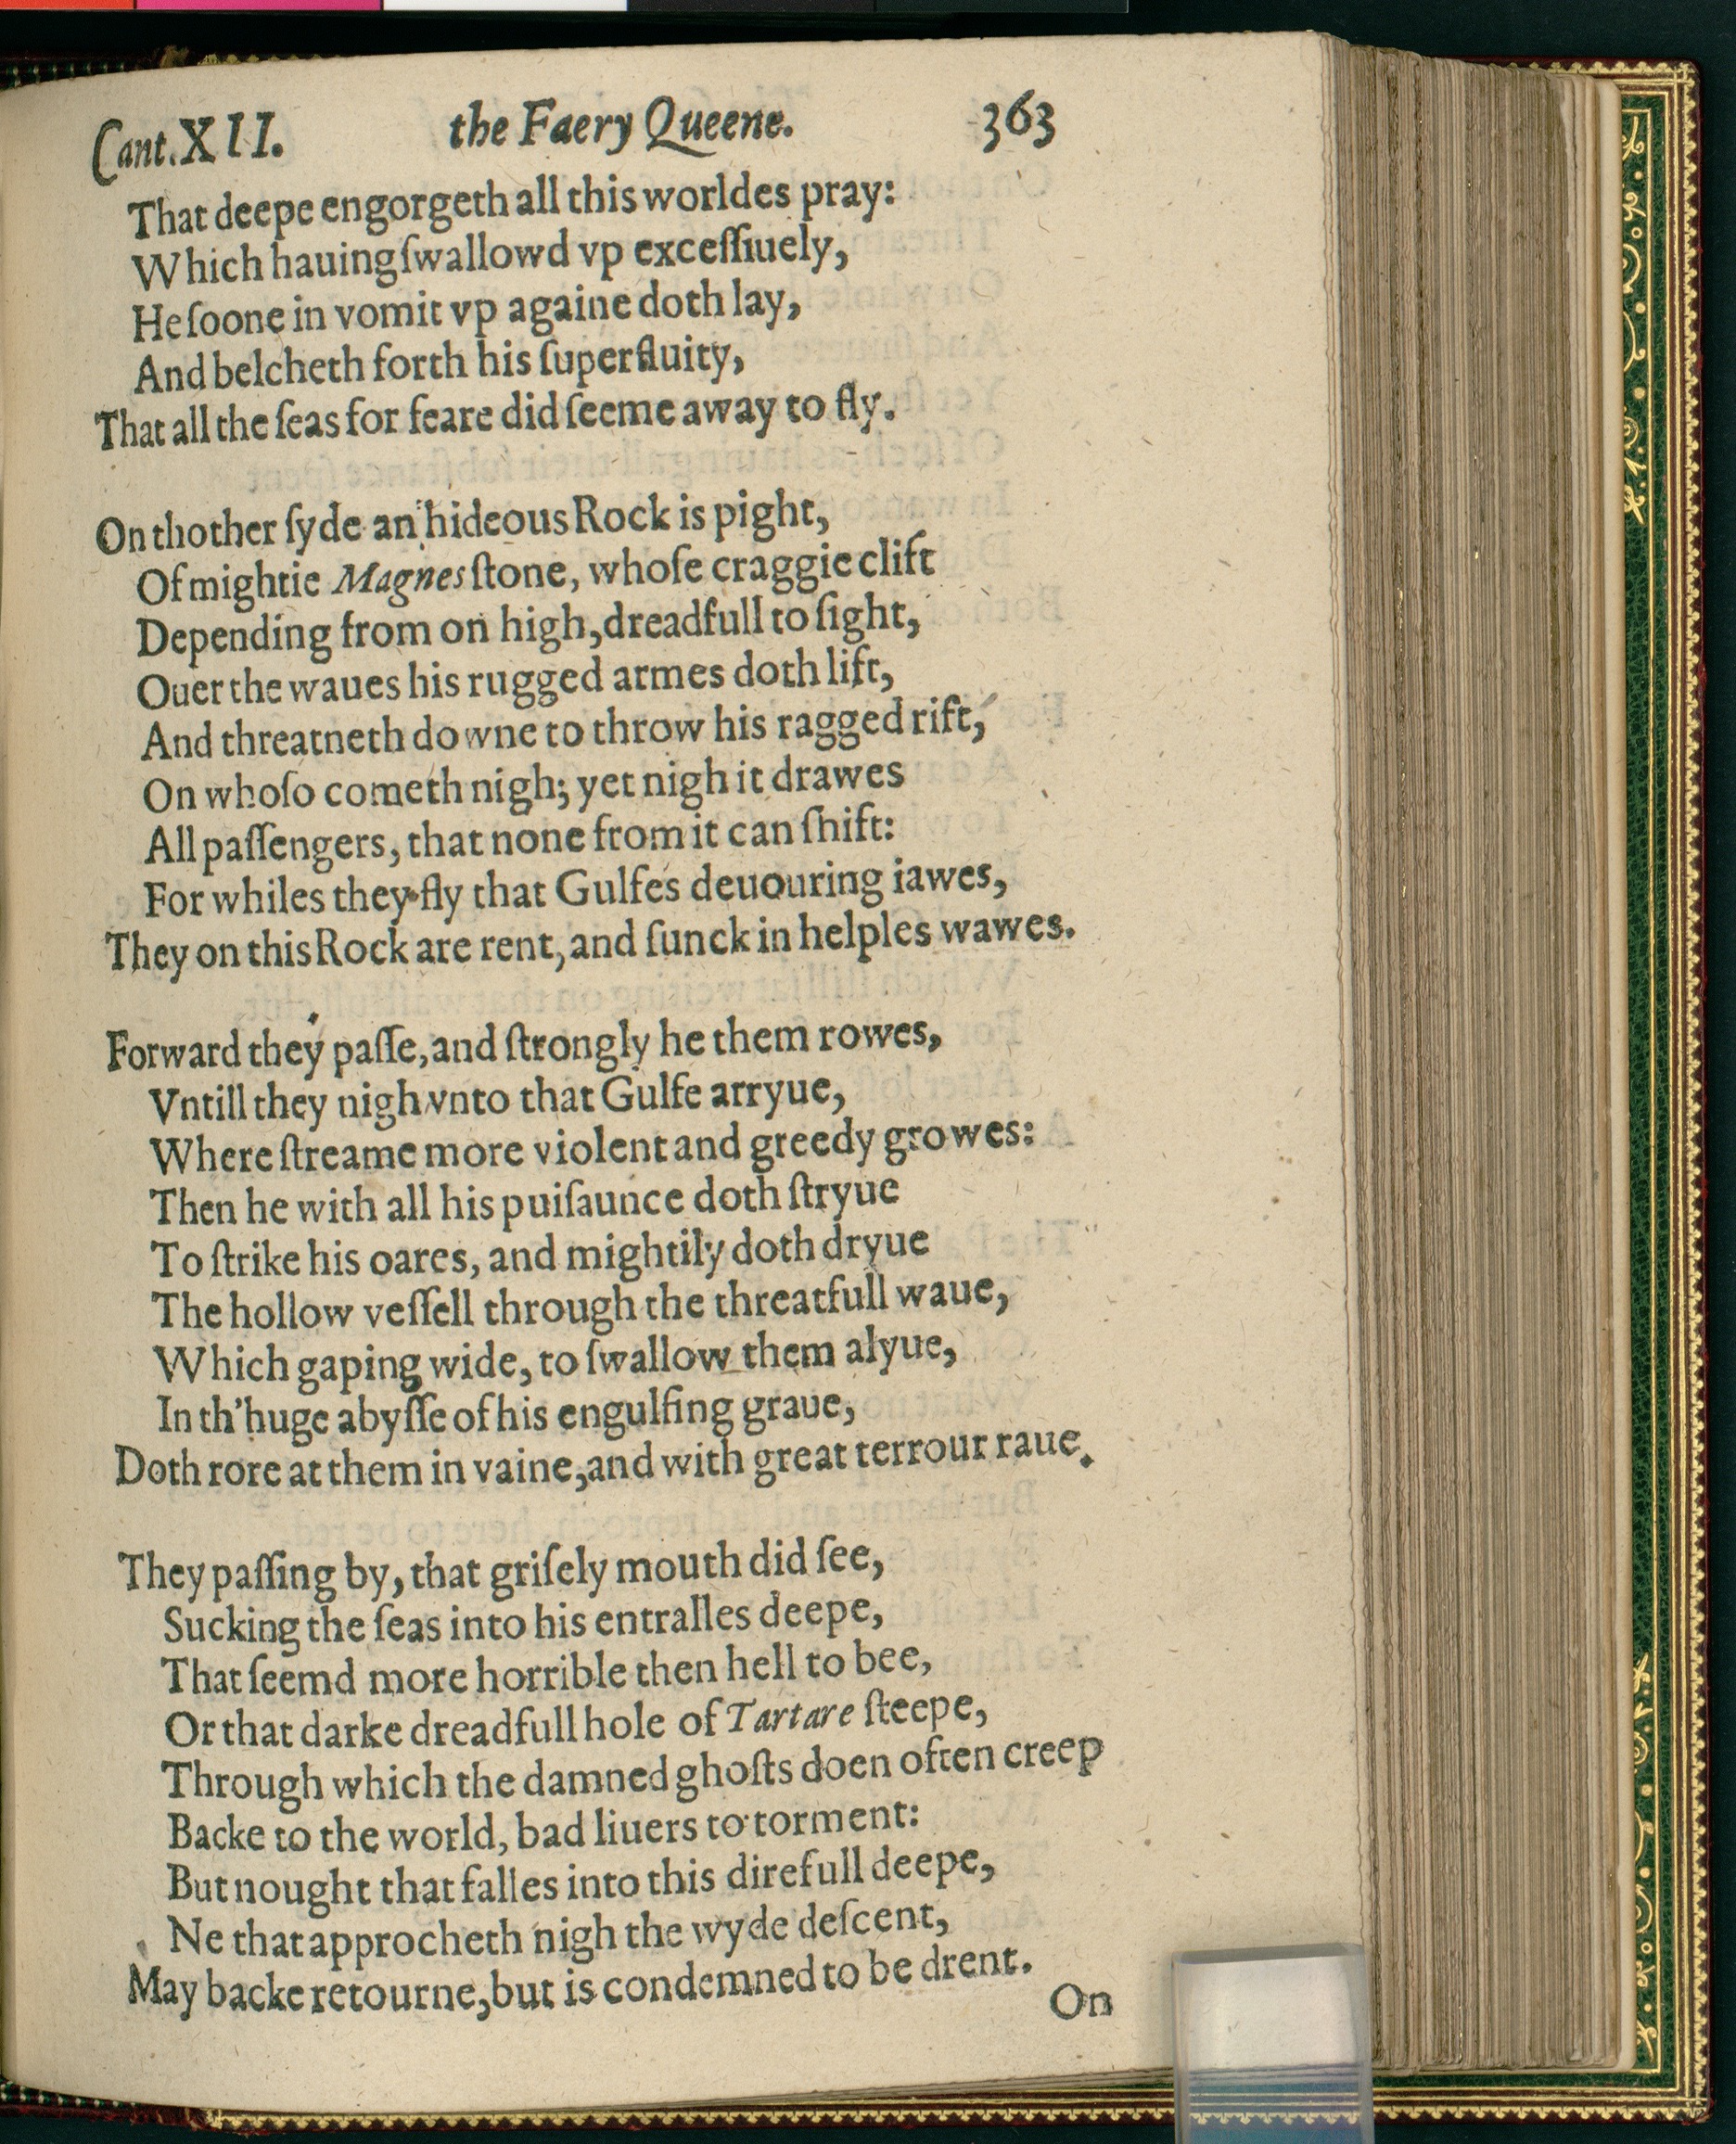 Cant. XII. the Faery Queene. 363
That deepe engorgeth all this worldes pray:
Which hauing ſwallowd vp exceſſiuely,
He ſoone in vomit vp againe doth lay,
And belcheth forth his ſuperfluity,
That all the ſeas for feare did ſeeme away to fly.
On thother ſyde an hideous Rock is pight,
Of mightie Magnes ſtone, whoſe craggie clift
Depending from on high, dreadfull to ſight,
Ouer the waues his rugged armes doth lift,
And threatneth downe to throw his ragged rift,
On whoſo cometh nigh; yet nigh it drawes
All paſſengers, that none from it can ſhift:
For whiles they fly that Gulfes deuouring iawes,
They on this Rock are rent, and ſunck in helples wawes.
Forward they paſſe, and ſtrongly he them rowes,
Vntill they nigh vnto that Gulfe arryue,
Where ſtreame more violent and greedy growes:
Then he with all his puiſaunce doth ſtryue
To ſtrike his oares, and mightily doth dryue
The hollow veſſell through the threatfull waue,
Which gaping wide, to ſwallow them alyue,
In th'huge abyſſe of his engulfing graue,
Doth rore at them in vaine, and with great terrour raue.
They paſſing by, that griſely mouth did ſee,
Sucking the ſeas into his entralles deepe,
That ſeemd more horrible then hell to bee,
Or that darke dreadfull hole of Tartare ſteepe,
Through which the damned ghoſts doen often creep
Backe to the world, bad liuers to torment:
But nought that falles into this direfull deepe,
Ne that approcheth nigh the wyde deſcent,
May backe retourne, but is condemned to be drent.
On